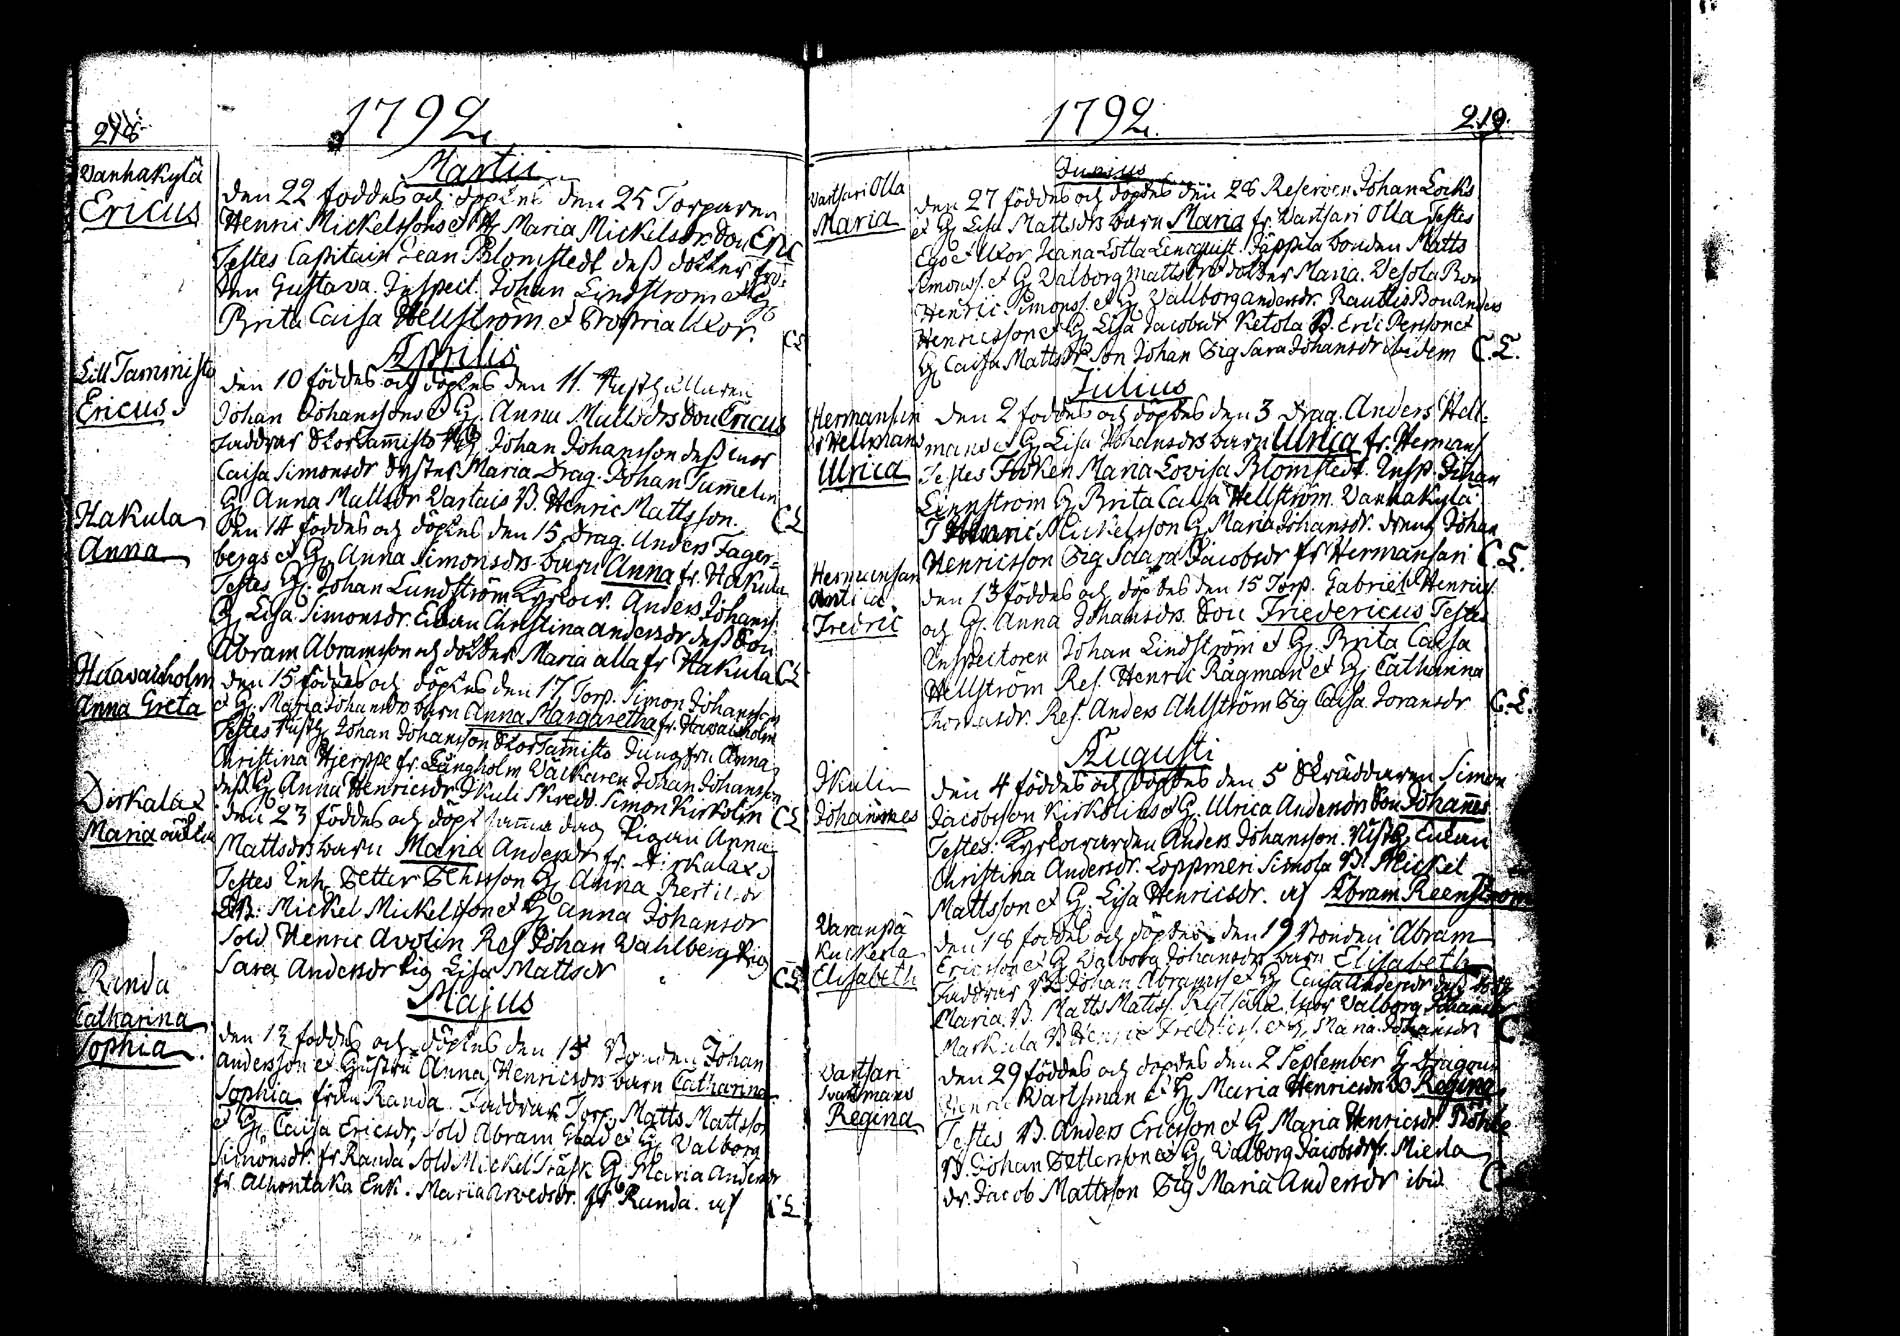 218.
1792.
Vanhakylä
Ericus
Martii
den 22 föddes och döptes den 25 Torparen
Henric Mickelssons et Hu Maria Mickelsdr. Son Eric
Testes Capitain Jean Blomstedt dess dotter frö-
ken Gustava. Inspect. Johan Lindström et G
Brita Caisa Hellström et Propria Uxor.
C L
Lill Tammisto
Ericus
Aprilis
den 10 föddes och döptes den 11. Rusth ållaren
Johan Johanssons et G. Anna Mattsdrs Son Ericus
Faddrar Stortam̄isto Johan Johansson dess mor
Caisa Simonsdr Syster Maria Drag. Johan Tum̄elin
G. Anna Mattsdr Vartais B. Henric Mattsson.
C L
Hakula
Anna
Den 14 föddes och döptes den 15 Drag. Anders Fager-
bergs et G. Anna Simonsdrs barn Anna fr. Hakula
Testes G. Johan Lundström Kyrkov. Anders Johanss.
G. Lisa Simonsdr. Enkan Christina Andersdr dess Son
Abram Abramsson och dotter Maria alla fr Hakula
C L
Haavaisholm
Anna Greta
den 15 föddes och döptes den 17 Torp. Simon Johansson
et G. Maria Johansdrs barn Anna Margaretha fr. Havaisholm
Testes Rusth. Johan Johansson Stortam̄isto Jungfru Anna
Christina Hjerppe fr. Långholm Välkaren Johan Johansson
dess G. Anna Henricsdr. Ikuli Skredd. Simon Kirkolin
C L
Dirkalax
Maria
den 23 föddes och döpt sam̄a dag Pigan Anna
Mattsdrs barn Maria Andersdr fr. Dirkalax
Testes Petter G. Anna Bertilsdr
B. Mickel Mickelsson et G Anna Johansdr
Sold. Henric Avolin Res Johan Wahlberg Pig
Sara Andersdr Pig Lisa Mattsdr
C L
Randa
Catharina
Sophia
Majus
den 13 föddes och döptes den 15 Bonden Johan
Andersson et Hustru Anna Henricsdrs barn Catharina
Sophia från Randa. Faddrar Torp. Matts Mattsson
et G. Caisa Ericsdr, Sold Abram Glad et G. Valborg
Simonsdr. fr Randa Sold Mickel Träsk G. Maria Andersdr
fr. Alhontaka Enk. Maria Arvedsdr. fr Randa.
C L
1792.
219.
Vartsari Olla
Maria
Junius
den 27 föddes och döptes den 28 Reserven Johan Locks
et G. Lisa Mattsdrs barn Maria fr. Vartsari Olla Testes
Ego et Uxor Jeana Lotta Lindquist. Jäppilä bonden Matts
Simonss. et G. Valborg Mattsdr dotter Maria. Vesola Bon
Henric Simonss. et G. Vallborg Andersdr. Rautlis Bon Anders
Henricsson et G. Lisa Jacobsdr Ketola B. Eric Persson et
G. Caisa Mattsdr Son Johan Pig Sara Johansdr ibidem
C. L.
Hermansari
Hellmans
Ulrica
Julius
den 2 föddes och döptes den 3 Drag. Anders Hell-
mans et G. Lisa Johansdrs barn Ulrica fr. Hermans
Testes Fröken Maria Lovisa Blomstedt. Insp. Johan
Linnström G. Brita Caisa Hellström. Vanhakylä
T Henric Mickelsson G Maria Johansdr. Johan
Henricsson Pig Saara Jacobsdr fr Hermansari
C. L.
Hermansari
Antila
Fredric
den 13 föddes och döptes den 15 Torp. Gabriel Henrics.
och G. Anna Johansdrs. Son Friedericus Testes
Inspectoren Johan Lindström et G. Brita Caisa
Hellström Res. Henric Rågman et G. Catharina
Thomasdr. Res. Anders Ahlström Pig Caisa Joransdr
C. L.
Ikulin
Johannes
Augusti
den 4 föddes och döptes den 5 Skräddaren Simon
Jacobsson Kirkolins et G. Ulrica Andersdrs Son Johan̄es
Testes. Kyrkovärden Anders Johansson. Rusth. Enkan
Christina Andersdr. Loppmeri Simola B. Mickel
Mattsson et G. Lisa Henricsdr. Abram Reenström
Varanpä
Kuckerla
Elisabeth
den 18 föddes och döptes den 19 Bonden Abram
Ericsson et G Valborg Johansdrs barn Elisabeth
Faddrar Johan Abramss et G Caisa Andersdr dess dotter
Maria. B. Matts Matss. Uxor Valborg Johansdr
Markula B Henric et G. Maria Johansdr
C
Vartsari
Vartmans
Regina
den 29 föddes och döptes den 2 September G. Dragoun
Henric Wartsman et G. Maria Henricsdrs Regina
Testes B. Anders Ericsson et G Maria Henricsdr. Pöhle
B. Johan Pettersson et G. Valborg Jacobsdr fr. Miekla
dr. Jacob Mattsson Pig Maria Andersdr ibid.
C